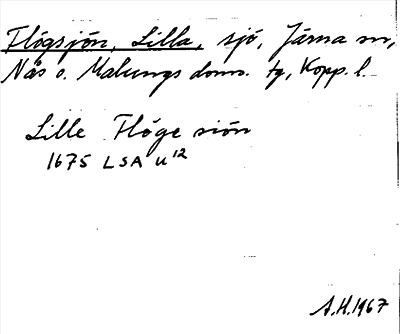 Flögsjön, Lilla, sjö, Järna sn,
Nås o. Malungs doms. tg, Kopp. l.
Lille Flöge siön
1675 LSA U12
A.H. 1967